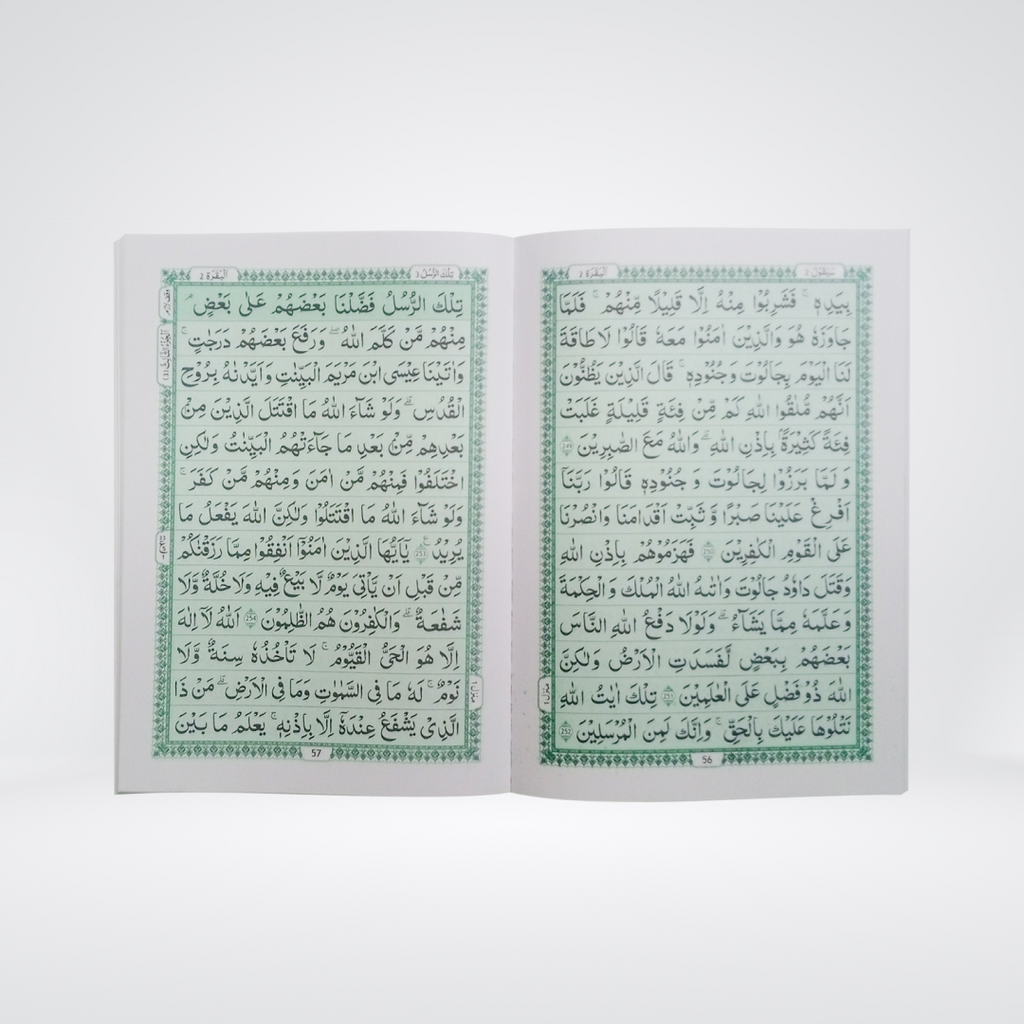 سَيَقُوْلُ 2
اَلْبَقَرَة 2
بِيَدِهٖ ۚ فَشَرِبُوْا مِنْهُ اِلَّا قَلِيْلًا مِّنْهُمْ ۚ فَلَمَّا
جَاوَزَهٗ هُوَ وَالَّذِيْنَ اٰمَنُوْا مَعَهٗ قَالُوْا لَاطَاقَةَ
لَنَا الْيَوْمَ بِجَالُوْتَ وَجُنُوْدِهٖ ۚ قَالَ الَّذِيْنَ يَظُنُّوْنَ
اَنَّهُمْ مُّلٰقُوا اللّٰهِ كَمْ مِّنْ فِئَةٍ قَلِيْلَةٍ غَلَبَتْ
فِئَةً كَثِيْرَةًۢ بِاِذْنِ اللّٰهِ ۗ وَاللّٰهُ مَعَ الصّٰبِرِيْنَ 249
وَلَمَّا بَرَزُوْا لِجَالُوْتَ وَجُنُوْدِهٖ قَالُوْا رَبَّنَاۤ
اَفْرِغْ عَلَيْنَا صَبْرًا وَّثَبِّتْ اَقْدَامَنَا وَانْصُرْنَا
عَلَى الْقَوْمِ الْكٰفِرِيْنَ 250 فَهَزَمُوْهُمْ بِاِذْنِ اللّٰهِ
وَقَتَلَ دَاوٗدُ جَالُوْتَ وَاٰتٰىهُ اللّٰهُ الْمُلْكَ وَالْحِكْمَةَ
وَعَلَّمَهٗ مِمَّا يَشَآءُ ۗ وَلَوْلَا دَفْعُ اللّٰهِ النَّاسَ
بَعْضَهُمْ بِبَعْضٍ لَّفَسَدَتِ الْاَرْضُ وَلٰكِنَّ
اللّٰهَ ذُوْفَضْلٍ عَلَى الْعٰلَمِيْنَ 251 تِلْكَ اٰيٰتُ اللّٰهِ
نَتْلُوْهَا عَلَيْكَ بِالْحَقِّ ۚ وَاِنَّكَ لَمِنَ الْمُرْسَلِيْنَ 252
مَنْزِل ١
56
تِلْكَ الرُّسُلُ 3
اَلْبَقَرَة 2
تِلْكَ الرُّسُلُ فَضَّلْنَا بَعْضَهُمْ عَلٰى بَعْضٍ ۘ
مِنْهُمْ مَّنْ كَلَّمَ اللّٰهُ وَرَفَعَ بَعْضَهُمْ دَرَجٰتٍ ۚ
وَاٰتَيْنَا عِيْسَى ابْنَ مَرْيَمَ الْبَيِّنٰتِ وَاَيَّدْنٰهُ بِرُوْحِ
الْقُدُسِ ۗ وَلَوْ شَآءَ اللّٰهُ مَا اقْتَتَلَ الَّذِيْنَ مِنْۢ
بَعْدِهِمْ مِّنْۢ بَعْدِ مَا جَآءَتْهُمُ الْبَيِّنٰتُ وَلٰكِنِ
اخْتَلَفُوْا فَمِنْهُمْ مَّنْ اٰمَنَ وَمِنْهُمْ مَّنْ كَفَرَ ۚ
وَلَوْ شَآءَ اللّٰهُ مَا اقْتَتَلُوْا وَلٰكِنَّ اللّٰهَ يَفْعَلُ مَا
يُرِيْدُ 253 يٰۤاَيُّهَا الَّذِيْنَ اٰمَنُوْۤا اَنْفِقُوْا مِمَّا رَزَقْنٰكُمْ
مِّنْ قَبْلِ اَنْ يَّاْتِيَ يَوْمٌ لَّا بَيْعٌ فِيْهِ وَلَا خُلَّةٌ وَّلَا
شَفٰعَةٌ ۗ وَالْكٰفِرُوْنَ هُمُ الظّٰلِمُوْنَ 254 اَللّٰهُ لَاۤ اِلٰهَ
اِلَّا هُوَ الْحَيُّ الْقَيُّوْمُ ۚ لَا تَاْخُذُهٗ سِنَةٌ وَّلَا
نَوْمٌ ۚ لَهٗ مَا فِي السَّمٰوٰتِ وَمَا فِي الْاَرْضِ ۗ مَنْ ذَا
الَّذِيْ يَشْفَعُ عِنْدَهٗۤ اِلَّا بِاِذْنِهٖ ۚ يَعْلَمُ مَا بَيْنَ
مَنْزِل ١
57